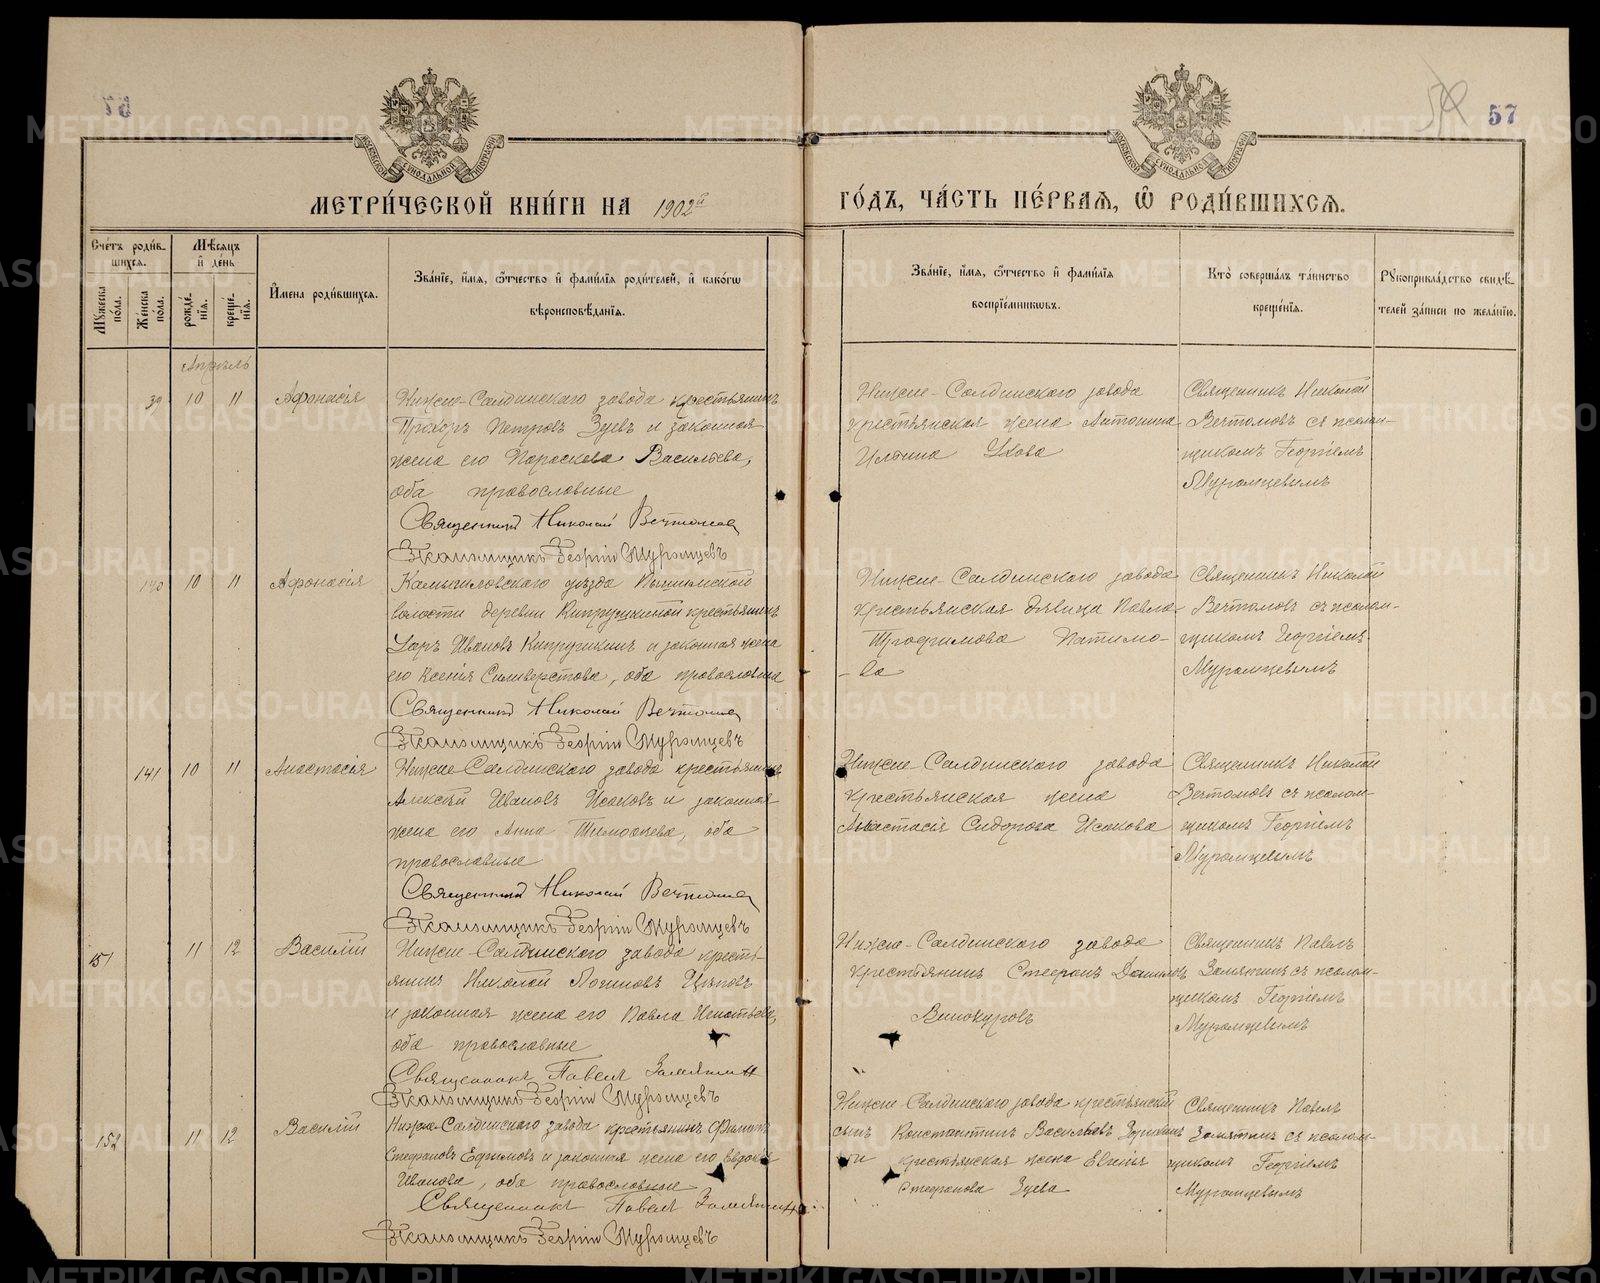 57
МЕТРИ́ЧЕСКОЙ КНИ́ГИ НА 1902й
ГО́ДЪ, ЧА́СТЬ ПЕ́РВАѦ, Ѡ҆ РОДИ́ВШИХСѦ.
Сче́тъ роди́в-
шихсѧ.
Мѣ́сѧцъ
и҆ де́нь
Мꙋ́жеска по́ла.
Же́нска по́ла.
рожде́-
нїѧ.
креще́-
нїѧ.
И҆мена̀ роди́вшихсѧ.
Зва́нїе, и҆́мѧ, ѻ҆́тчество и҆ фами́лїѧ роди́телей, и҆ како́гѡ
вѣроисповѣ́данїѧ.
Зва́нїе, и҆́мѧ, ѻ҆́тчество и҆ фами́лїѧ
воспрїе́мникѡвъ.
Кто̀ соверша́лъ та́инство
креще́нїѧ.
Рꙋкоприкла́дство свидѣ́-
телей за́писи по жела́нїю.
Апрѣль
39 10 11 Афонасія
Нижне-Салдинскаго завода крестьянинъ
Прохоръ Петровъ Зуевъ и законная
жена его Параскева Васильева,
оба православные
Священникъ Николай Вечтомов
Псаломщикъ Георгій Муромцевъ
Нижне-Салдинскаго завода
крестьянская жена Антонина
Ильина Ухова
Священникъ Николай
Вечтомовъ съ псалом-
щикомъ Георгіемъ
Муромцевымъ
140 10 11 Афонасія
Камышловскаго уѣзда Пышминской
волости деревни Кипрушкиной крестьянинъ
Иванов Кипрушкинъ и законная жена
его Ксенія Силиверстова, оба православные
Священникъ Николай Вечтомов
Псаломщикъ Георгій Муромцевъ
Нижне-Салдинскаго завода
крестьянская дѣвица Павла
Трофимова Патимо-
-ва
Священникъ Николай
Вечтомовъ съ псалом-
щикомъ Георгіемъ
Муромцевымъ
141 10 11 Анастасія
Нижне-Салдинскаго завода крестьянинъ
Алексѣй Ивановъ Исаковъ и законная
жена его Анна Тимофеева, оба
православные
Священникъ Николай Вечтомов
Псаломщикъ Георгій Муромцевъ
Нижне-Салдинскаго завода
крестьянская жена
Анастасія Сидорова Исакова
Священникъ Николай
Вечтомовъ съ псалом-
щикомъ Георгіемъ
Муромцевымъ
151 11 12 Василій
Нижне-Салдинскаго завода кресть-
янинъ Николай Логиновъ Цѣповъ
и законная жена его Павла Игнатьева,
оба православные
Священникъ Павел Замятин
Псаломщикъ Георгій Муромцевъ
Нижне-Салдинскаго завода
крестьянинъ Стефанъ Даниловъ
Винокуровъ
Священникъ Павелъ
Замятинъ съ псалом-
щикомъ Георгіемъ
Муромцевымъ
152 11 12 Василій
Нижне-Салдинскаго завода крестьянинъ Филиппъ
Стефановъ Ефимовъ и законная жена его Евдокія
Иванова, оба православные
Священникъ Павел Замятин
Псаломщикъ Георгій Муромцевъ
Нижне-Салдинскаго завода крестьянскій
сынъ Константинъ Васильевъ
и крестьянская жена Евгенія
Стефанова Зуева
Священникъ Павелъ
Замятинъ съ псалом-
щикомъ Георгіемъ
Муромцевымъ
METRIKI.GASO-URAL.RU